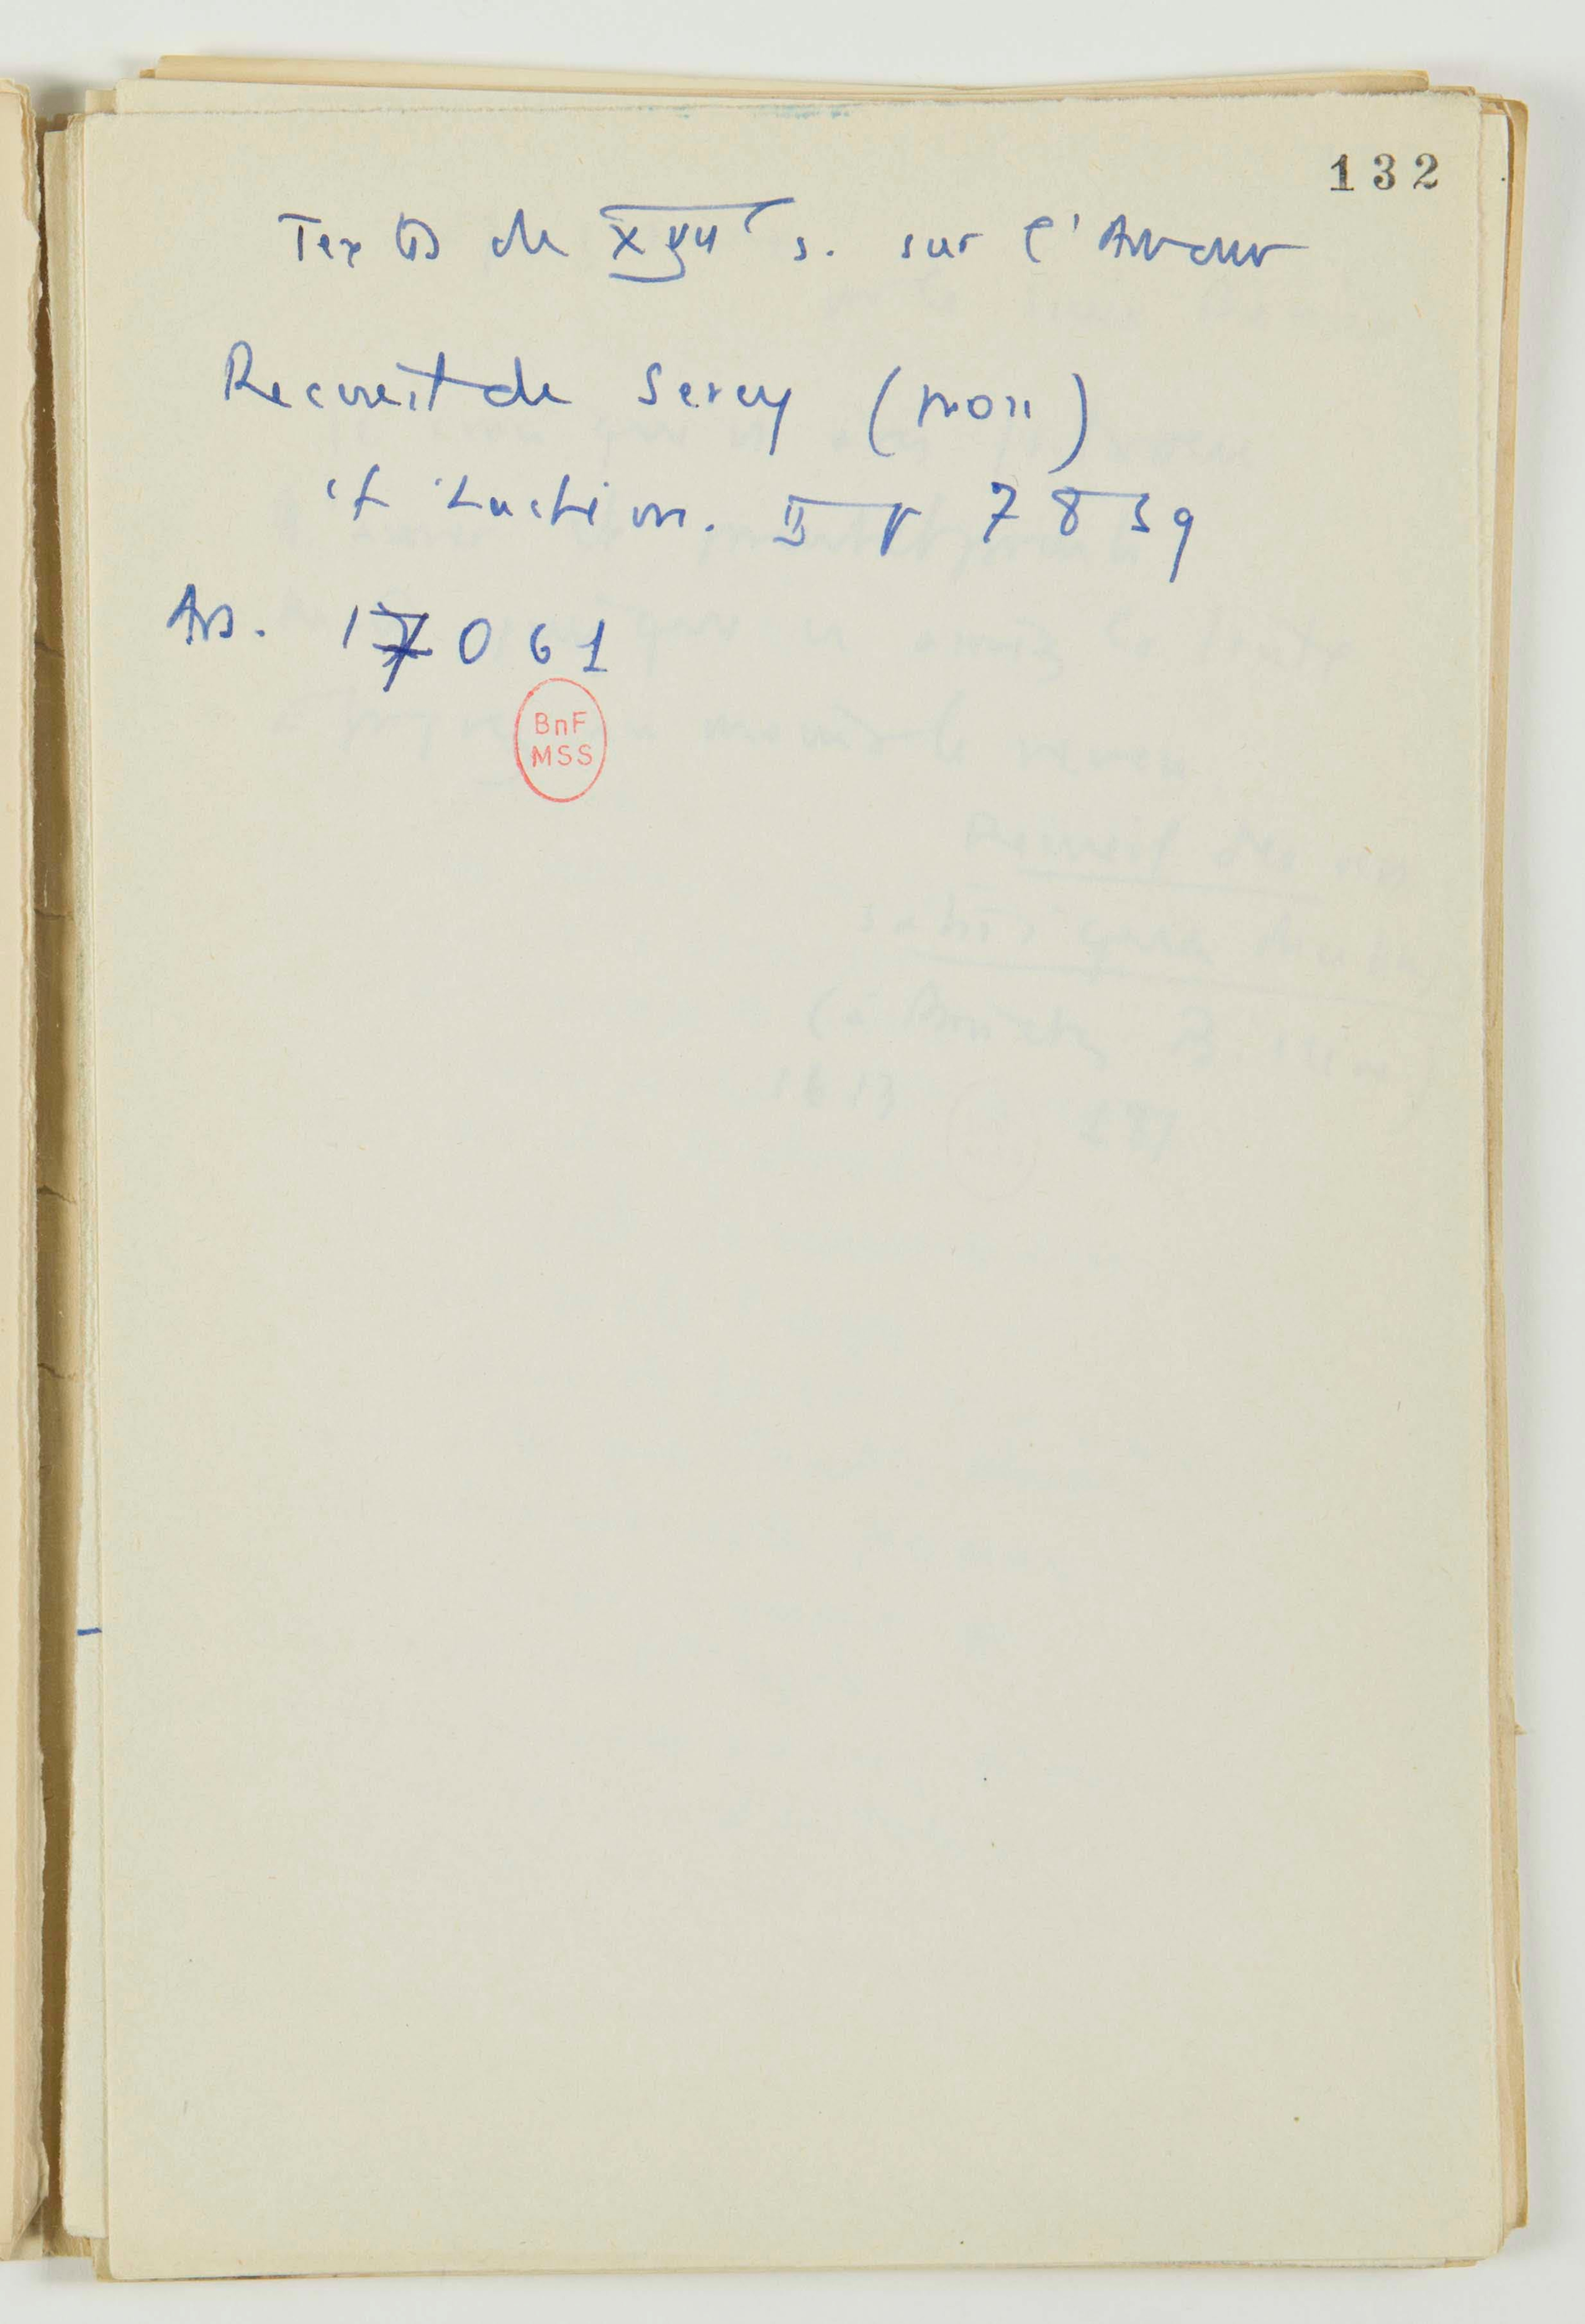 132
Textes du XVIIe s. sur l'Amour
Recueil de Sercy (
cf Lachèvre. II p 78 59
Ars. 17061
BnF
MSS